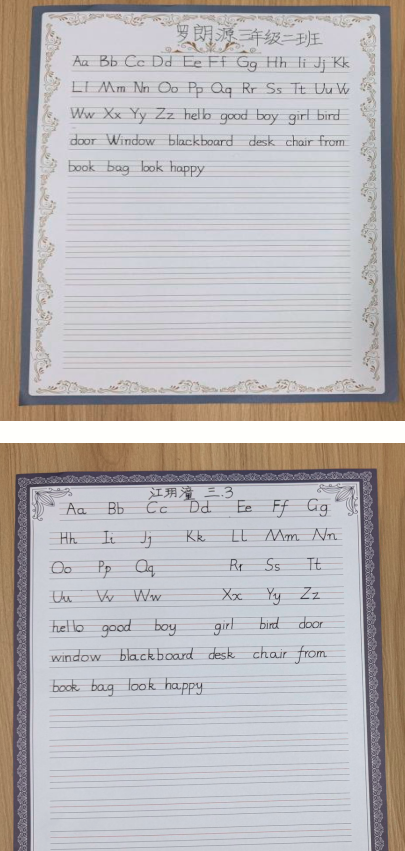 罗朗源三年级二班
Aa Bb Cc Dd Ee Ff Gg Hh Ii Jj Kk
Ll Mm Nn Oo Pp Qq Rr Ss Tt Uu Vv
Ww Xx Yy Zz hello good boy girl bird
door Window blackboard desk chair from
book bag look happy
江玥潼 三.3
Aa Bb Cc Dd Ee Ff Gg
Hh Ii Jj Kk Ll Mm Nn
Oo Pp Qq Rr Ss Tt
Uu Vv Ww Xx Yy Zz
hello good boy girl bird door
window blackboard desk chair from
book bag look happy